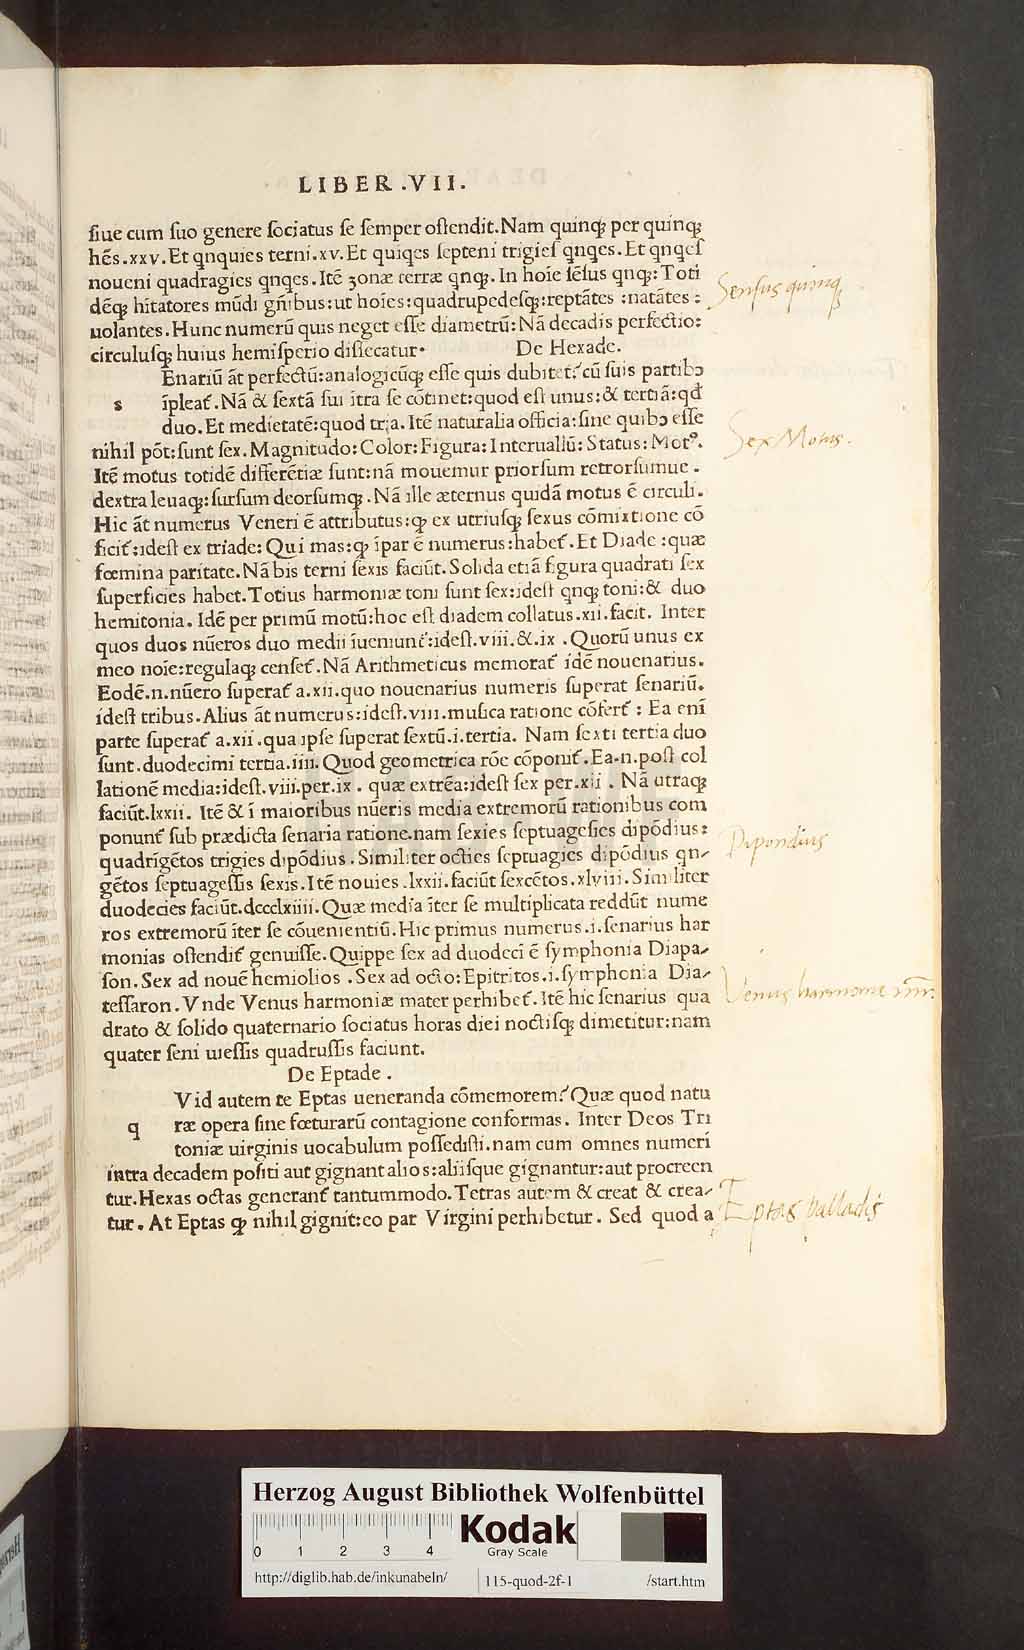 LIBER .VII.
ſiue cum ſuo genere ſociatus ſe ſemper oſtendit. Nam quinqꝫ per quinqꝫ
hēs.xxv. Et qnquies terni.xv. Et quiqes ſepteni trigieſ qnqes. Et qnqeſ
noueni quadragies qnqes. Itē zonæ terræ qnqꝫ. In hoīe ſēſus qnqꝫ: Toti
dēqꝫ hītatores mūdi gn̄ibus: ut hoīes: quadrupedeſqꝫ: reptātes : natātes :
uolantes. Hunc numerū quis neget eſſe diametrū: Nā decadis perfectio:
circulusqꝫ huius hemiſperio diſſecatur.
De Hexade.
s
Enariū āt perfectū: analogicūqꝫ eſſe quis dubitet? cū ſuis partibꝰ
īpleat᷑. Nā & ſextā ſui ītra ſe cōtinet: quod eſt unus: & tertiā: qd̄
duo. Et medietatē: quod tria. Itē naturalia officia: ſine quibꝰ eſſe
nihil pōt: ſunt ſex. Magnitudo: Color: Figura: Interuallū: Status: Motꝰ.
Itē motus totidē differētiæ ſunt: nā mouemur priorſum retrorſumue .
dextra leuaqꝫ: ſurſum deorſumqꝫ. Nā ille æternus quidā motus ē circuli.
Hic āt numerus Veneri ē attributus: ꝙ ex utriuſqꝫ ſexus cōmixtione cō
ficit᷑: ideſt ex triade: Qui mas: ꝙ īpar ē numerus: habet᷑. Et Diade : quæ
fœmina paritate. Nā bis terni ſexis faciūt. Solida etiā figura quadrati ſex
ſuperficies habet. Totius harmoniæ toni ſunt ſex: ideſt qnqꝫ toni: & duo
hemitonia. Idē per primū motū: hoc eſt diadem collatus.xii.facit. Inter
quos duos nūeros duo medii īueniunt᷑: ideſt.viii.&.ix . Quorū unus ex
meo noīe: regulaqꝫ cenſet᷑. Nā Arithmeticus memorat᷑ idē nouenarius.
Eodē.n.nūero ſuperat᷑ a.xii.quo nouenarius numeris ſuperat ſenariū.
ideſt tribus. Alius āt numerus: ideſt.viii.muſica ratione cōfert᷑ : Ea enī
parte ſuperat᷑ a.xii.qua ipſe ſuperat ſextū.i.tertia. Nam ſexti tertia duo
ſunt.duodecimi tertia.iiii. Quod geometrica rōe cōponit᷑. Ea.n.poſt col
lationē media: ideſt.viii.per.ix . quæ extrēa: ideſt ſex per.xii . Nā utraqꝫ
faciūt.lxxii. Itē & ī maioribus nūeris media extremorū rationibus com
ponunt᷑ ſub prædicta ſenaria ratione.nam ſexies ſeptuageſies dipōdius:
quadrīgētos trigies dipōdius. Similiter octies ſeptuagies dipōdius qn-
gētos ſeptuageſſis ſexis. Itē nouies.lxxii.faciūt ſexcētos.xlviii. Similiter
duodecies faciūt.dccclxiiii. Quæ media īter ſe multiplicata reddūt nume
ros extremorū īter ſe cōuenientiū. Hic primus numerus.i.ſenarius har
monias oſtendit᷑ genuiſſe. Quippe ſex ad duodecī ē ſymphonia Diapa-
ſon. Sex ad nouē hemiolios . Sex ad octo: Epitritos.i.ſymphonia Dia-
teſſaron. Vnde Venus harmoniæ mater perhibet᷑. Itē hic ſenarius qua
drato & ſolido quaternario ſociatus horas diei noctiſqꝫ dimetitur: nam
quater ſeni uieſſis quadruſſis faciunt.
De Eptade .
q
Vid autem te Eptas ueneranda cōmemorem? Quæ quod natu
ræ opera ſine fœturarū contagione conformas. Inter Deos Tri
toniæ uirginis uocabulum poſſediſti.nam cum omnes numeri
intra decadem poſiti aut gignant alios: aliiſque gignantur: aut procreen
tur. Hexas octas generant᷑ tantummodo. Tetras autem & creat & crea-
tur. At Eptas ꝙ nihil gignit: eo par Virgini perhibetur. Sed quod a
Senſus quinqꝫ
Sex Motus.
Dipondius
Venus harmoniae
Eptas Palladis
Herzog August Bibliothek Wolfenbüttel
0 1 2 3 4
Kodak
Gray Scale
http://diglib.hab.de/inkunabeln/
115-quod-2f-1
/start.htm